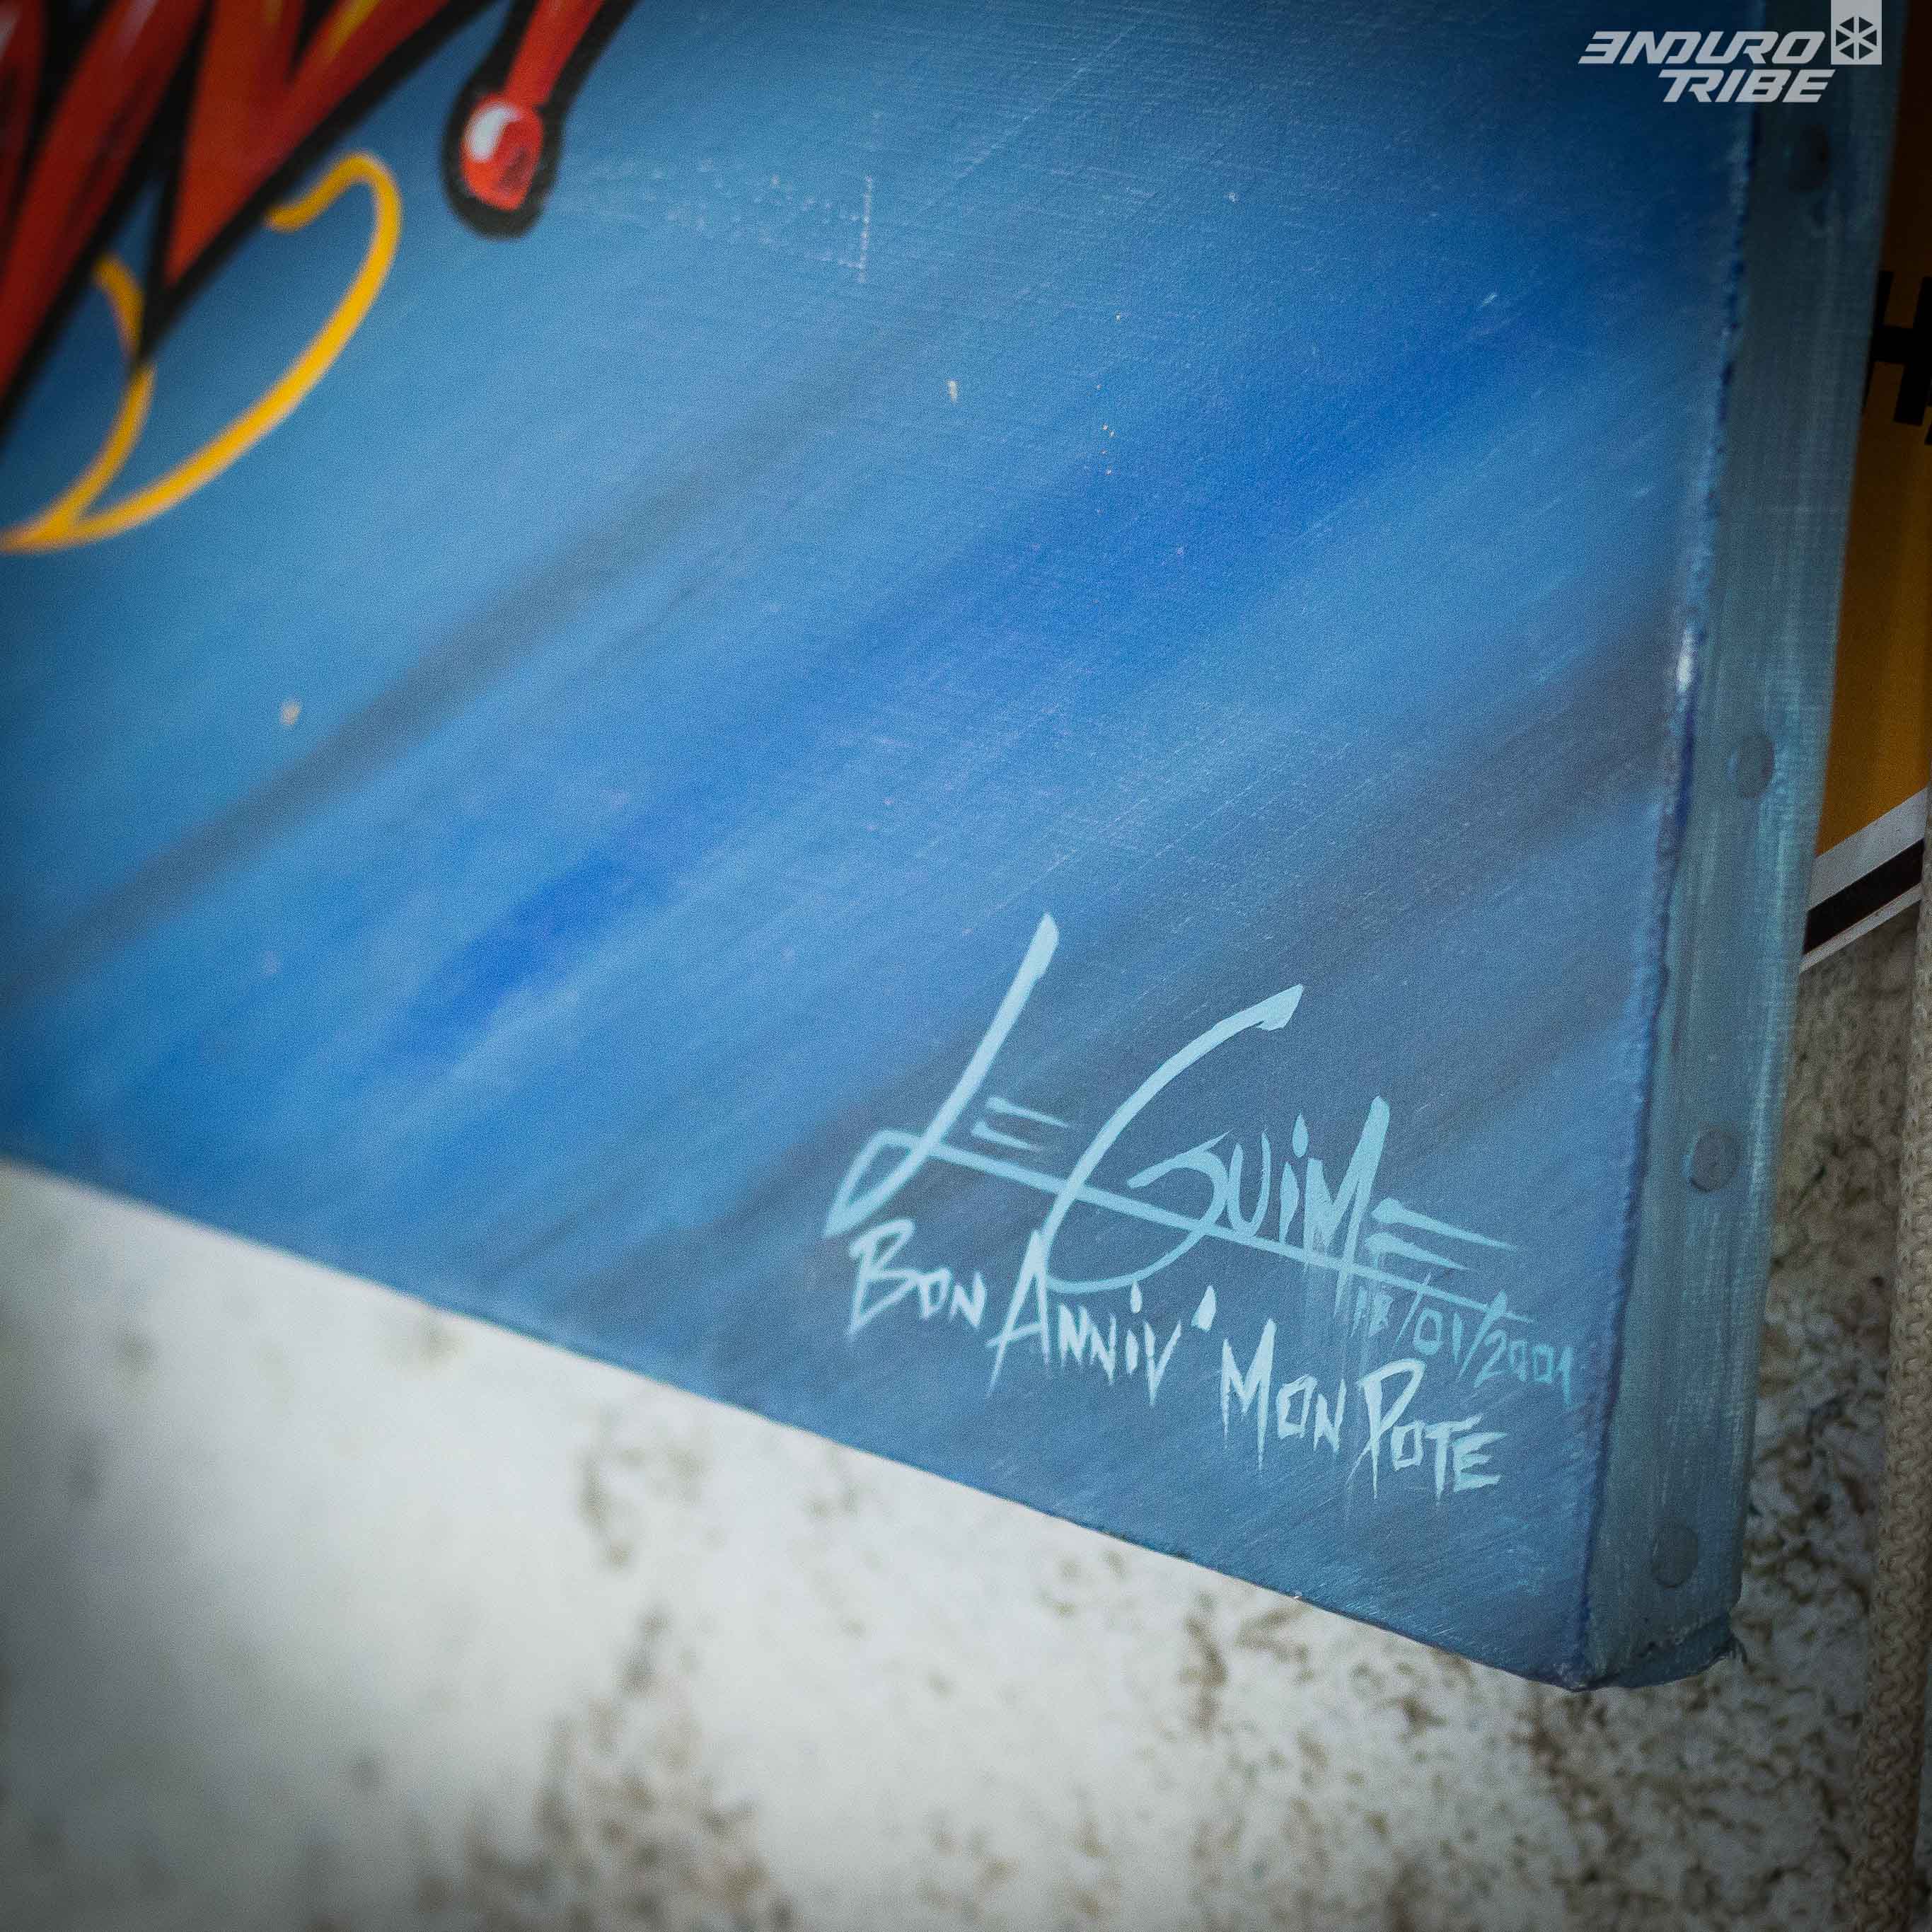 ENDURO
TRIBE
LE GUIME
18/01/2001
BON ANNIV' MON POTE